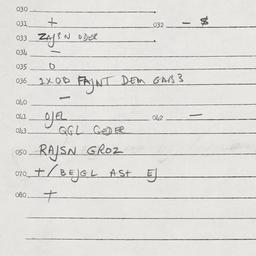 030
031 + 032 - $
033 ZAJSN ODER
034 -
035 O
036 2XOB FAJNT DEM GAB3
040 -
041 OJEL 042 -
043 QGL GODER
050 RAJSN GROZ
070 +/BEJGL AST EJ
080 +